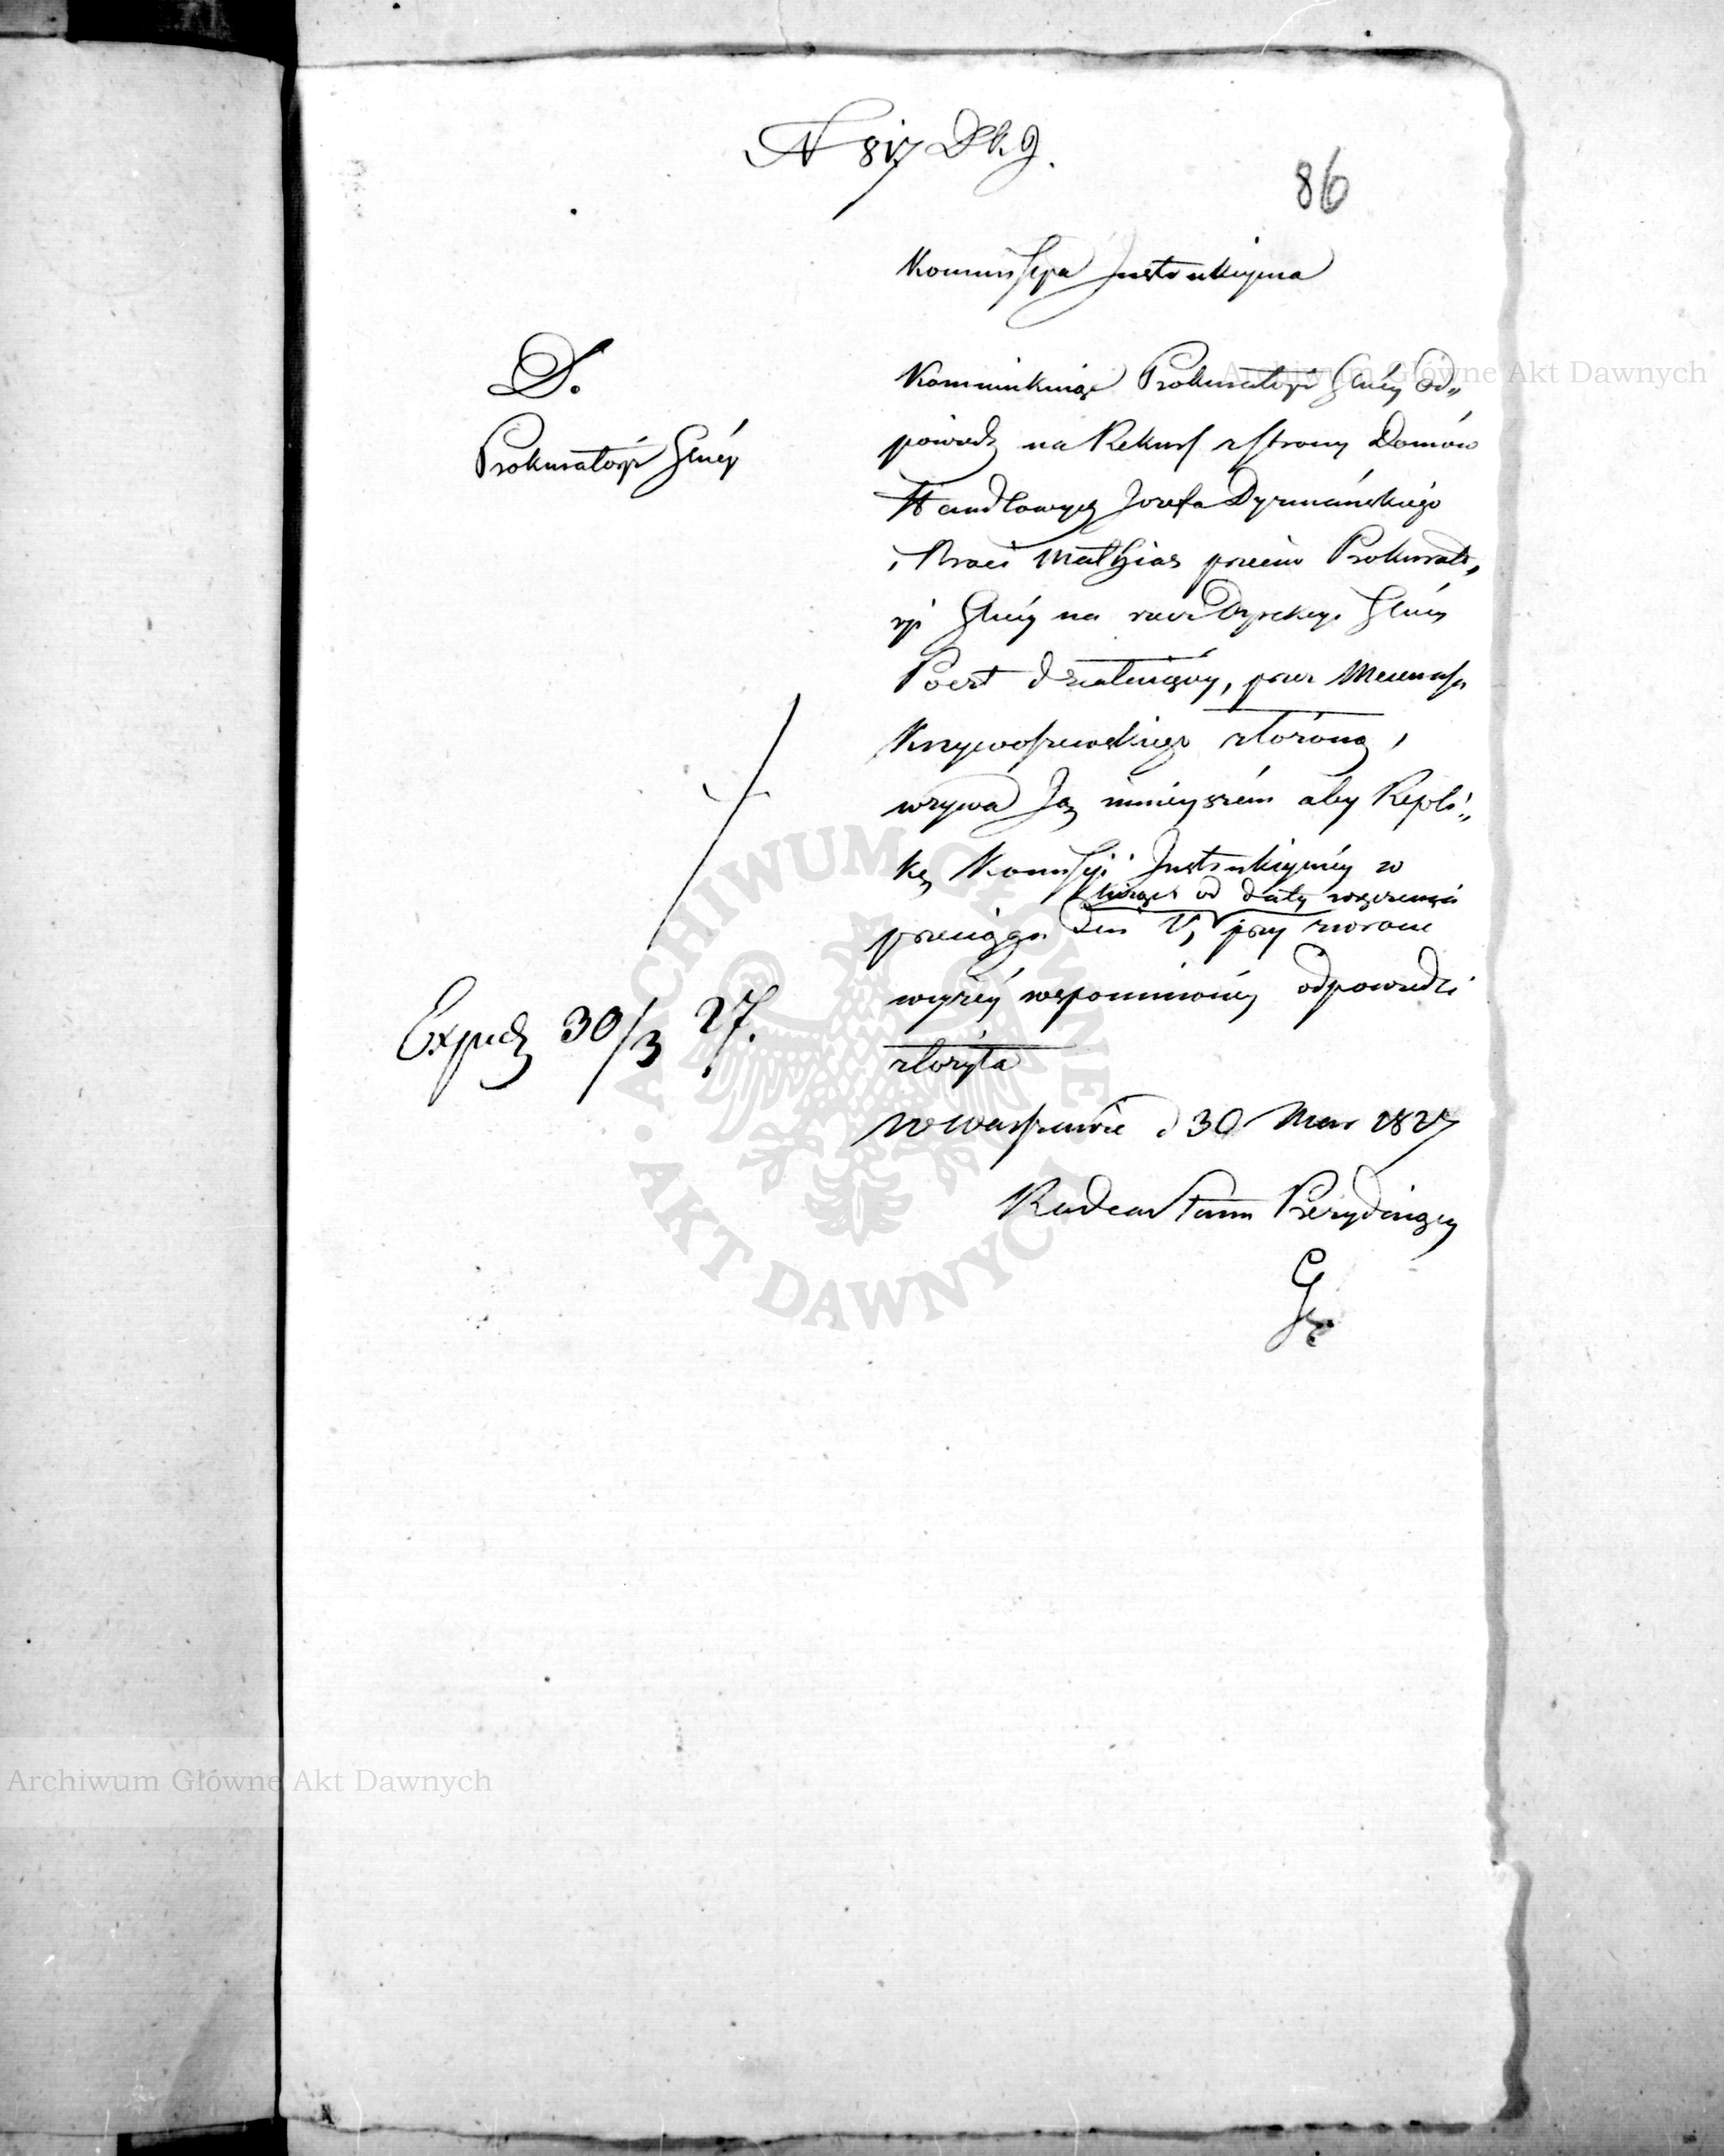 N 817 DKG.
86
Kommissya Instrukcyina
D.
Prokuratoryi Głnéy
Kommunikuiąc Prokuratoryi Głnéy od„
powiedz na Rekurs z strony Domów
Handlowych Jozefa Dyzmańskiego
i Braci Mathias przeciw Prokurato„
ryi Głnéy na rzecz Dyrekcyi Głnéy
Poczt działaiącéy, przez Mecenasa
Krzywoszewskiego złożoną,
wzywa Ją ninieyszém aby Repli„
kę Kommissyi Instrukcyinéy w
licząc od daty wręczenia
przeciągu dni 15, przy zwrocie
wyżéy wspomnionéy odpowiedzi
złożyła
w Warszawie d 30 Mar 1827
Radca Stanu Prezyduiący
Exped 30/3 27.
Archiwum Główne Akt Dawnych
ARCHIWUM GŁÓWNE
AKT DAWNYCH
Archiwum Główne Akt Dawnych